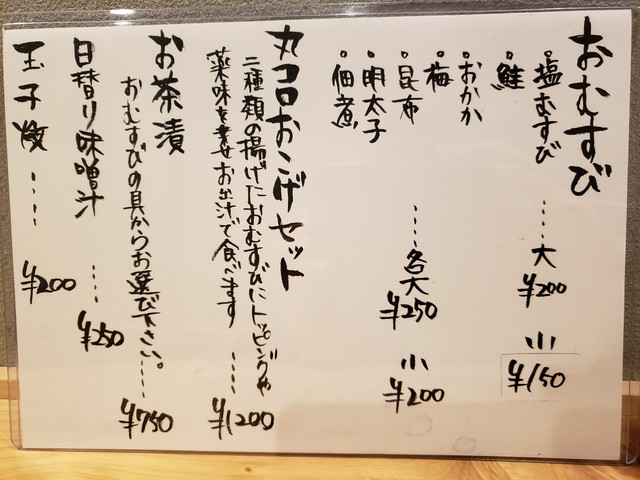 おむすび
・塩むすび ‥‥ 大 ¥200 小 ¥150
・鮭
・おかか
・梅
・昆布 ‥‥ 各大 ¥250 小 ¥200
・明太子
・佃煮
丸コロおこげセット
二種類の揚げたおむすびにトッピングや
薬味を乗せお出汁で食べます ‥‥ ¥1200
お茶漬
おむすびの具からお選び下さい。‥‥ ¥750
日替り味噌汁 ‥‥ ¥250
玉子焼 ‥‥ ¥200